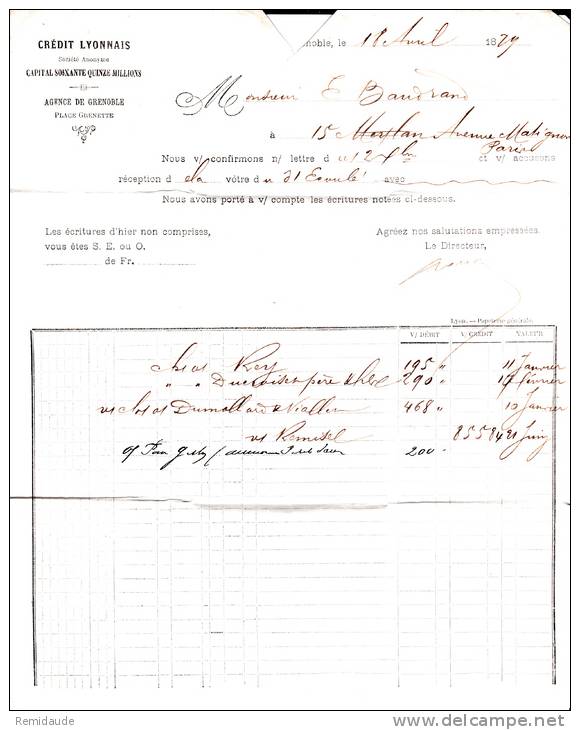 CRÉDIT LYONNAIS
Société Anonyme
CAPITAL SOIXANTE QUINZE MILLIONS
AGENCE DE GRENOBLE
PLACE GRENETTE
noble, le 18 Avril 1879
Monsieur E Baudrand
à 15 Avenue Matignon
Paris
Nous v/ confirmons n/ lettre d et v/ accusons
réception d vôtre d 31 Écoulé avec
Nous avons porté à v/ compte les écritures notées ci-dessous.
Les écritures d'hier non comprises,
vous êtes S. E. ou O.
de Fr.
Agréez nos salutations empressées.
Le Directeur,
Lyon. — Papeterie générale.
V/ DÉBIT V/ CRÉDIT VALEUR
Rey 195 " 11 Janvier
" " père & 290 " février
Dumollard & Viallet 468 " 10 Janvier
Remise 855 84 21 Juin
200 -
Remidaude
www.delcampe.net